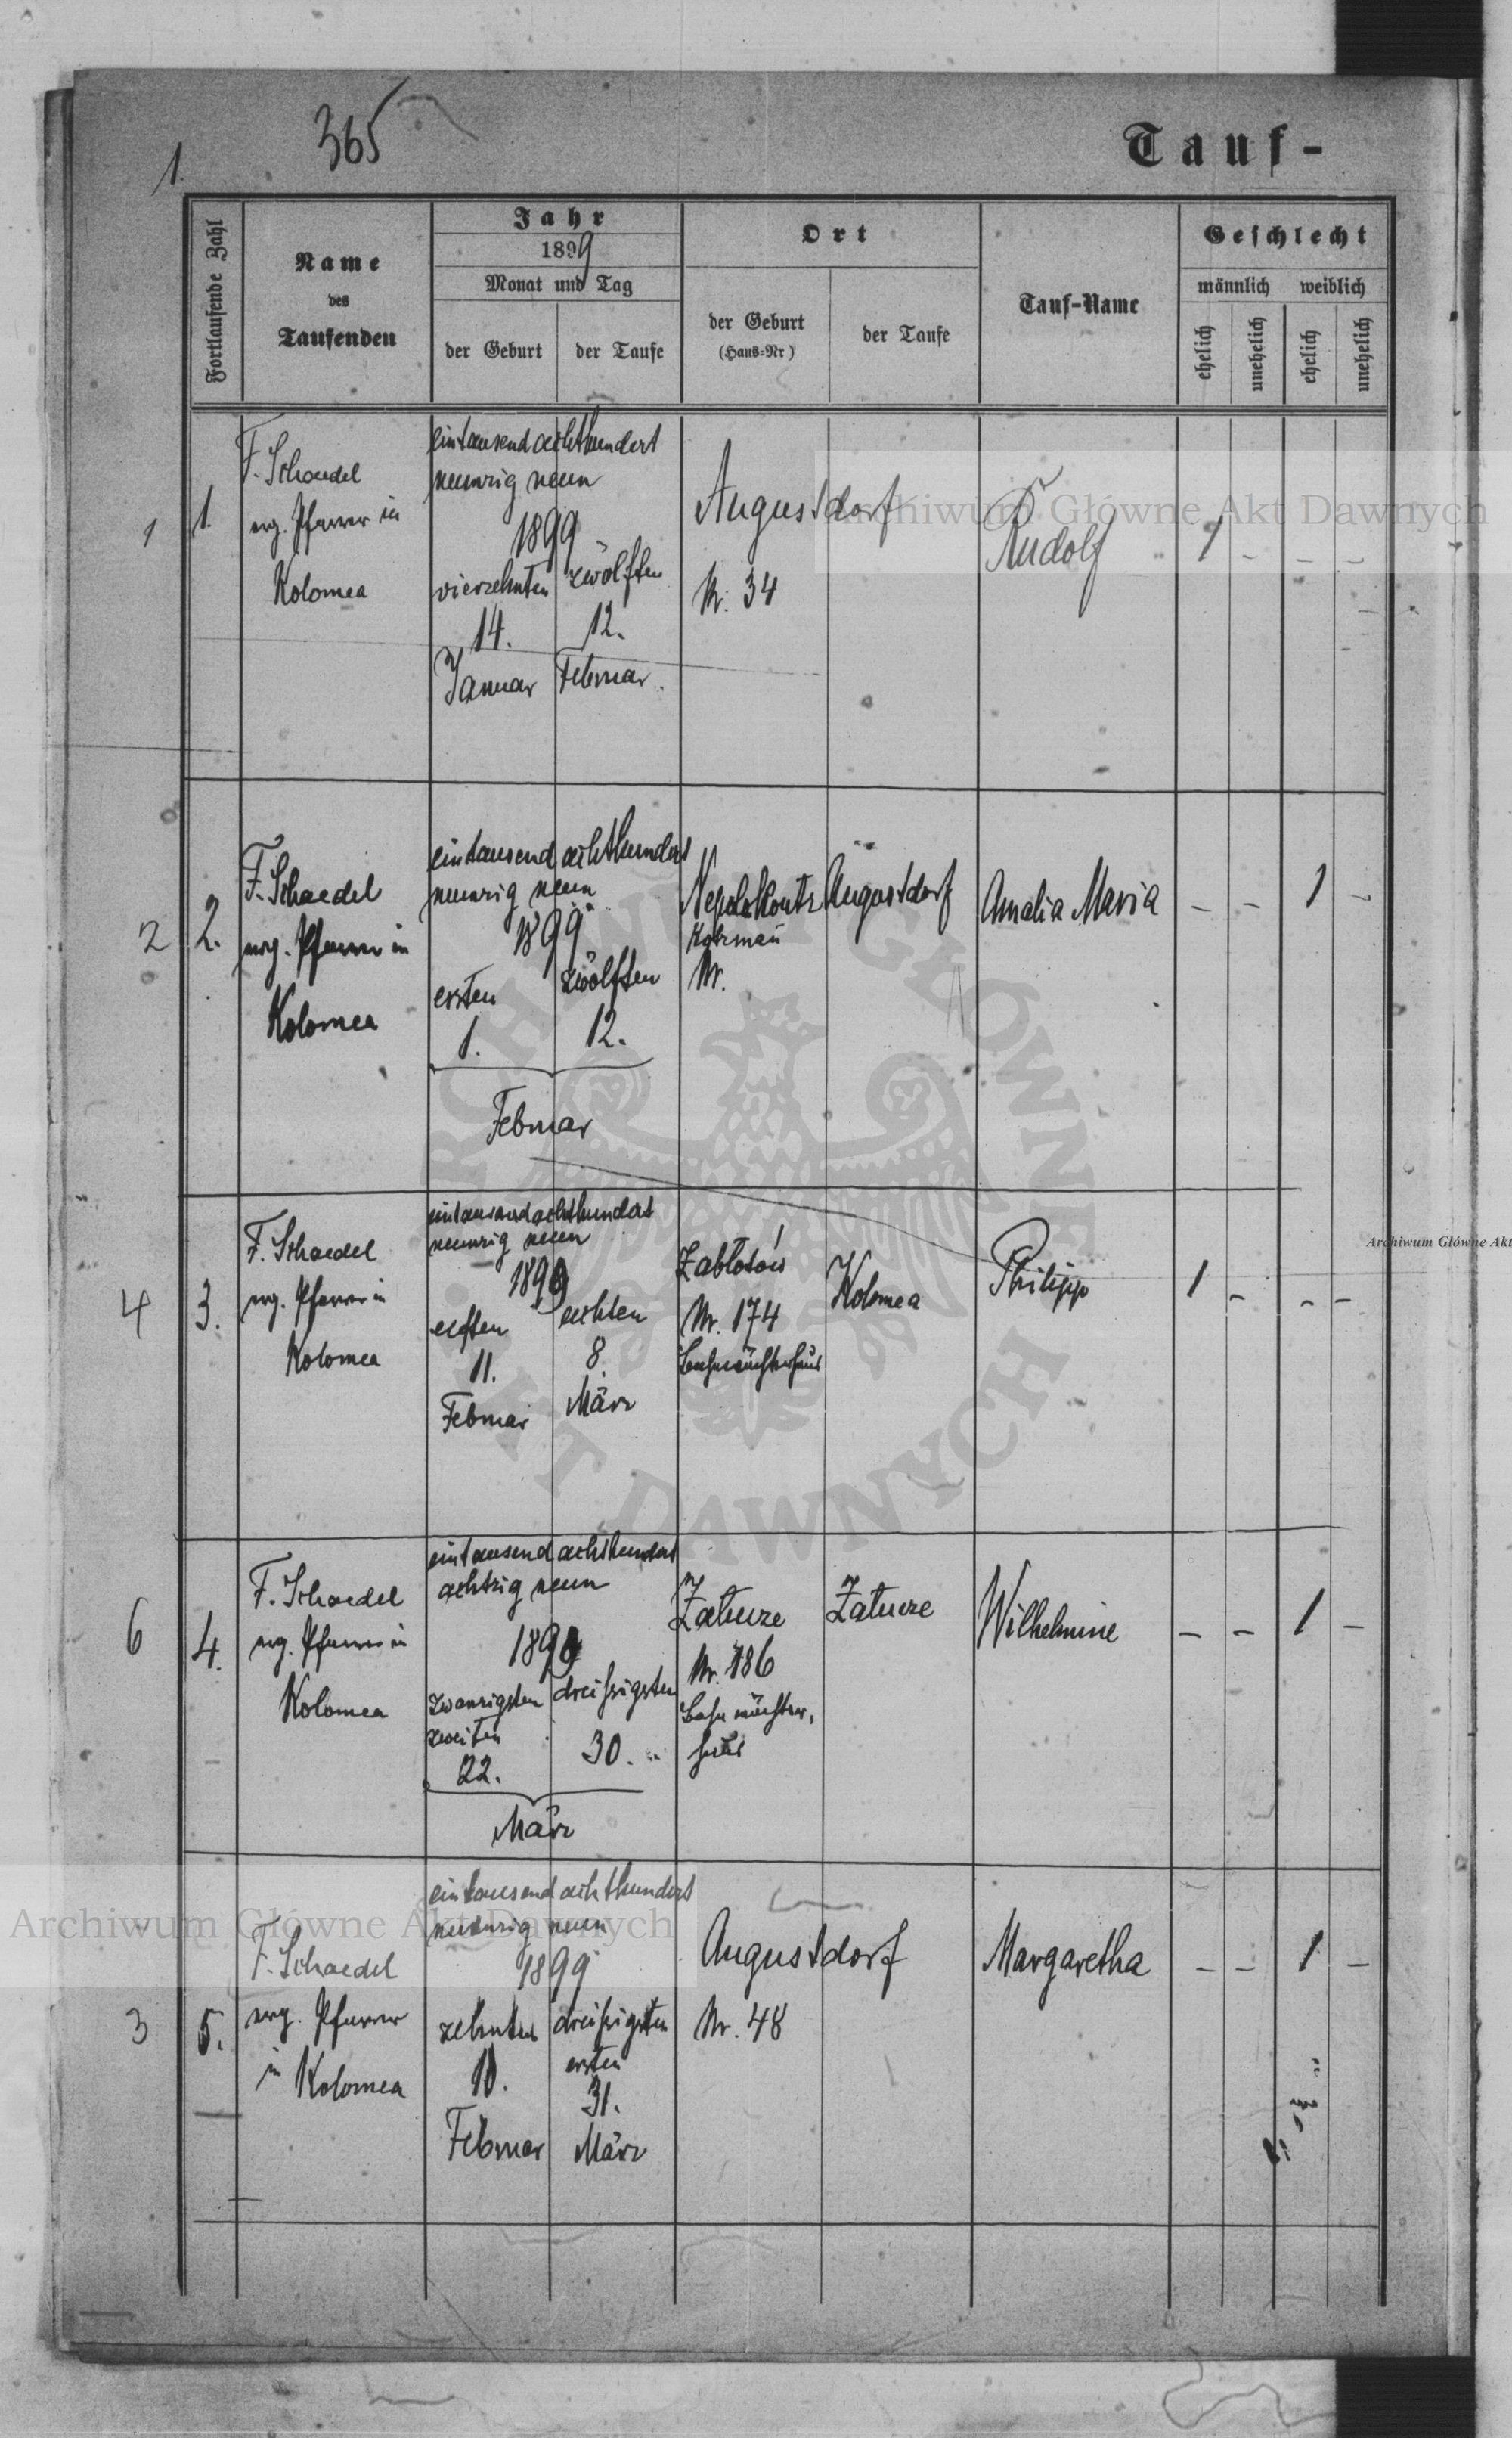 365
1.
Tauf-
Fortlaufende Zahl
Name
des
Taufenden
Jahr
1899
Monat und Tag
der Geburt
der Taufe
Ort
der Geburt
(Haus-Nr)
der Taufe
Tauf-Name
Geschlecht
männlich weiblich
ehelich
unehelich
ehelich
unehelich
1 1.
F. Schaedel
evg. Pfarrer in
Kolomea
eintausend achthundert
neunzig neun
1899
vierzehnten
14.
Januar
zwölften
12.
Februar
Augustdorf
Nr. 34
Rudolf
1 - - -
2 2.
F. Schaedel
evg. Pfarrer in
Kolomea
eintausend achthundert
neunzig neun
1899
ersten
1.
zwölften
12.
Februar
Nepolokoutz
Kotzman
Nr.
Augustdorf
Amalia Maria
- - 1 -
4 3.
F. Schaedel
evg. Pfarrer in
Kolomea
eintausend achthundert
neunzig neun
1899
elften
11.
Februar
achten
8.
März
Zabłotów
Nr. 174
Bahnwächterhaus
Kolomea
Philipp
1 - - -
6 4.
F. Schaedel
evg. Pfarrer in
Kolomea
eintausend achthundert
achtzig neun
1899
zwanzigsten
zweiten
22.
dreißigsten
30.
März
Zatucze
Nr. 186
Bahnwächter-
haus
Zatucze
Wilhelmine
- - 1 -
3 5.
F. Schaedel
evg. Pfarrer
in Kolomea
eintausend achthundert
neunzig neun
1899
zehnten
10.
Februar
dreißigsten
ersten
31.
März
Augustdorf
Nr. 48
Margaretha
- - 1 -
Archiwum Główne Akt Dawnych
Archiwum Główne Akt
Archiwum Główne Akt Dawnych
ARCHIWUM GŁÓWNE AKT DAWNYCH